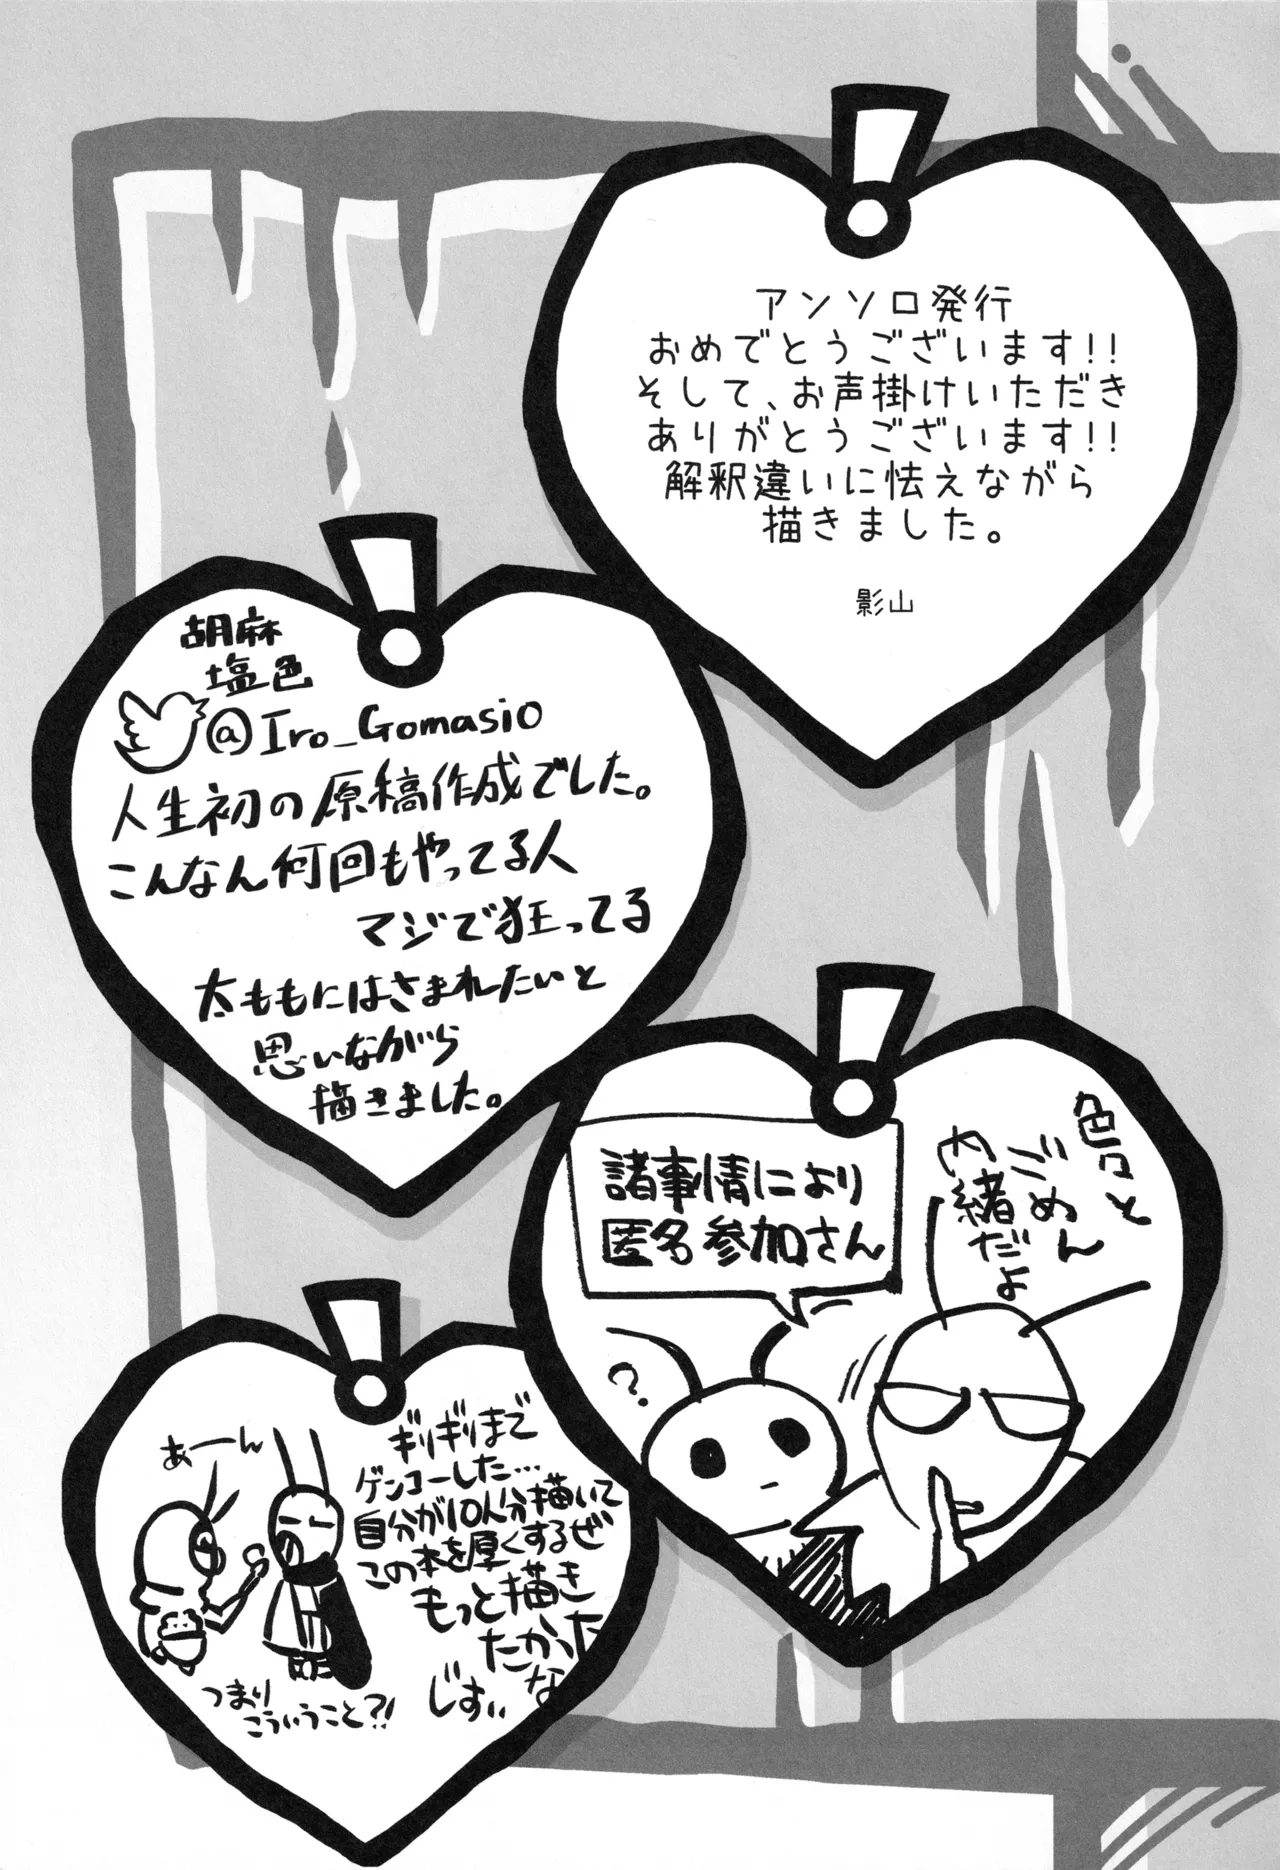 アンソロ発行
おめでとうございます!!
そして、お声掛けいただき
ありがとうございます!!
解釈違いに怯えながら
描きました。
影山
胡麻
塩色
@Iro_Gomasio
人生初の原稿作成でした。
こんなん何回もやってる人
マジで狂ってる
太ももにはさまれたいと
思いながら
描きました。
色々と
ごめん
内緒だよ
諸事情により
匿名参加さん
?
ギリギリまで
ゲンコーした…
自分が10人分描いて
この本を厚くするぜ
もっと描き
たかった
な
じすい
あーん
つまり
こういうこと?!